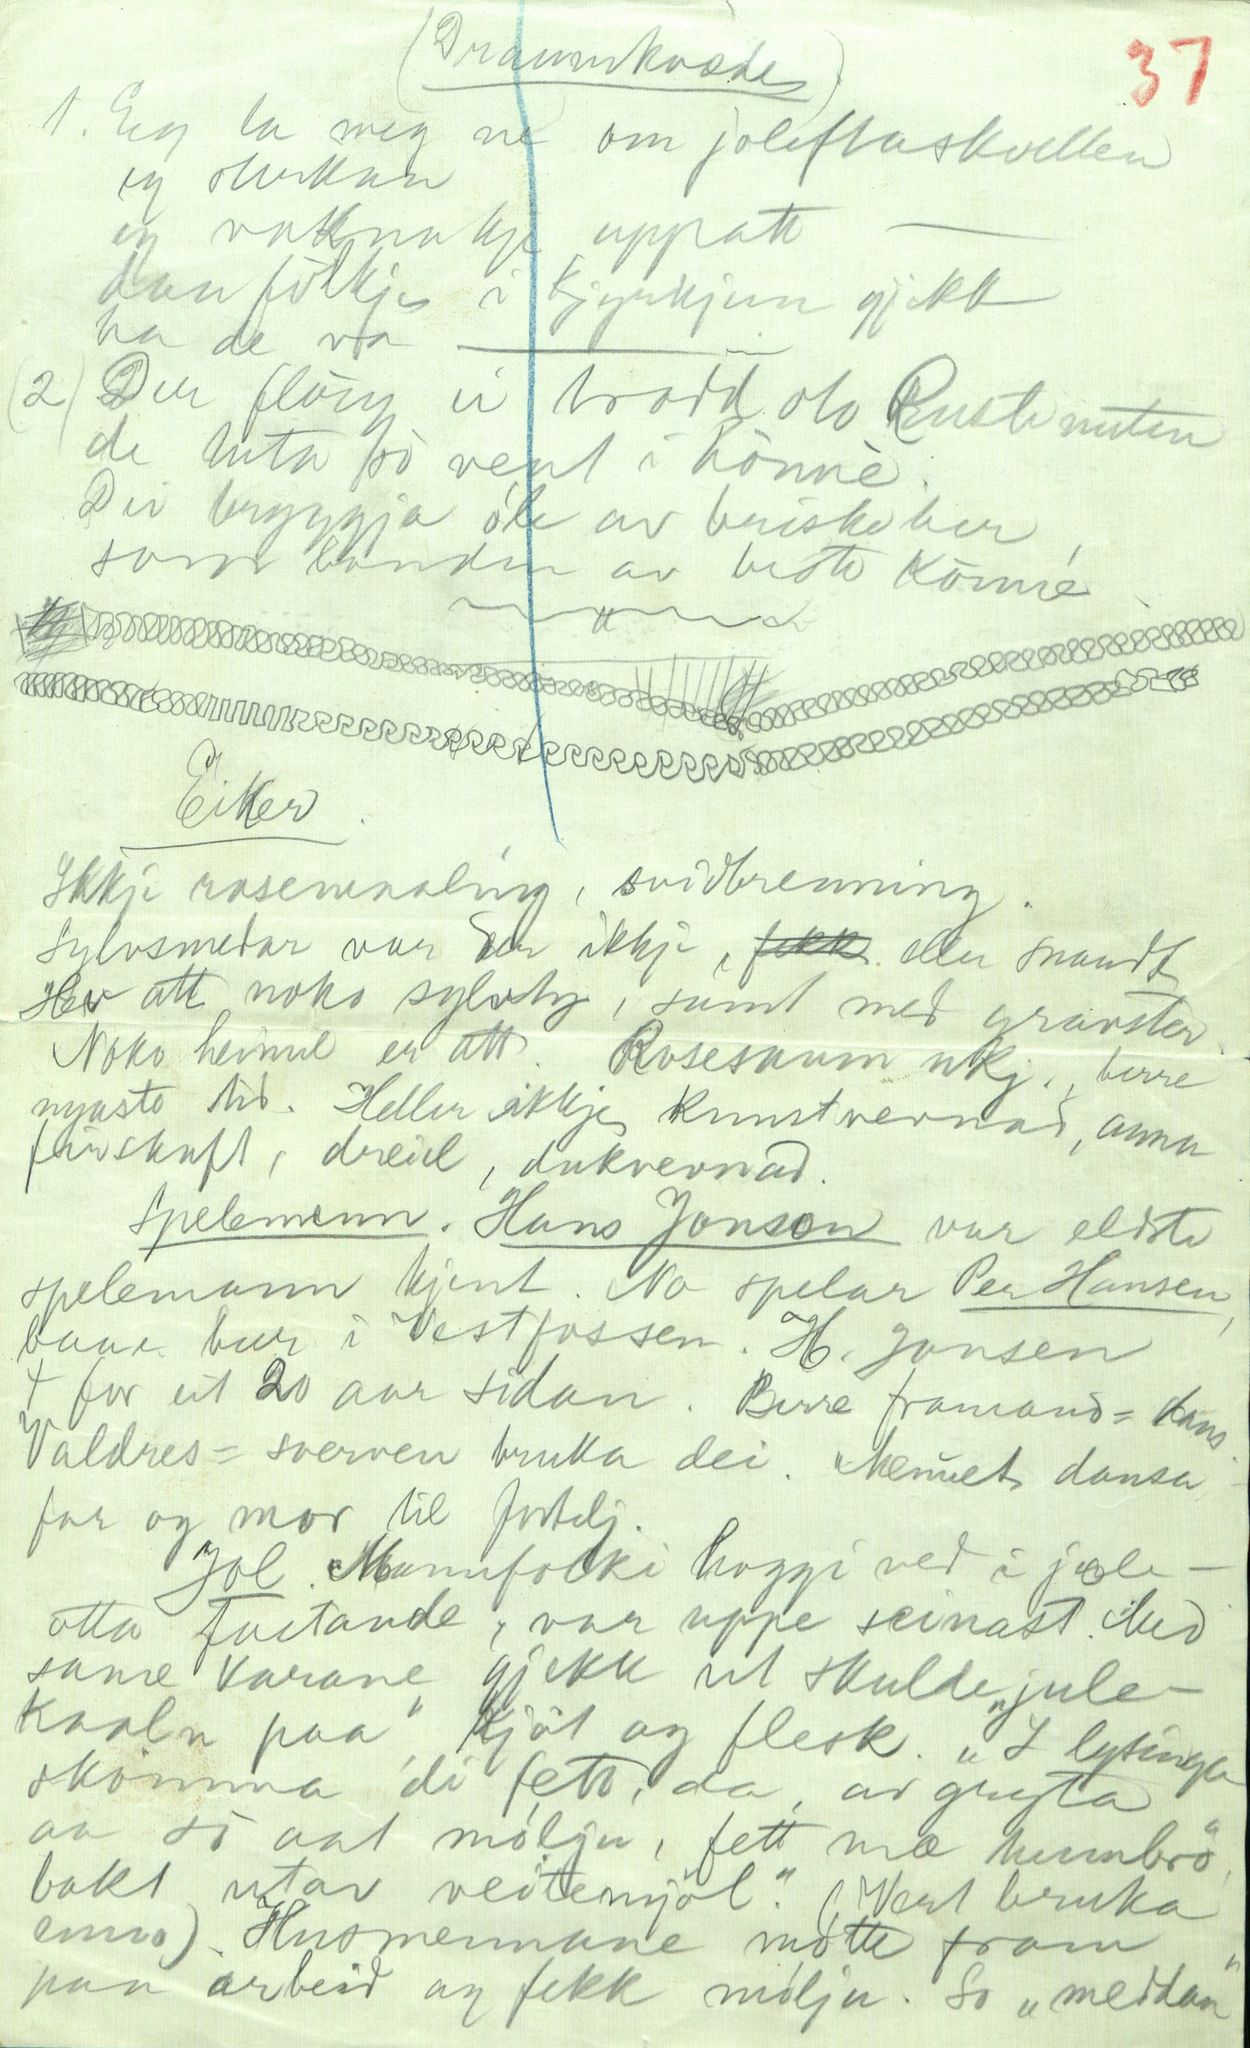 (Draumkvæde)
37
1. Eg la meg ne om joleftaskvellen
eg sterkan
eg vaknakje uppatt —
dan fölkje i kjyrkjun gjekk
ha de va
(2) Der flöug ei tradd oto Rustenuten
de luta sö vent i hönnè.
Dei bryggja öle av briskeber,
som bonden av beste könnè
Eiker.
Ikkje rosemaaling, svidbrenning.
Sylvsmedar var der ikkje, fekk eller snaudt
Her att noko sylvty, sumt med gravster.
Noko heimel er att. Rosesaum ukj., berre
nyaste tid. Heller ikkje kunstvevnad, anna
firskaft, dreiel, dukvevnad.
Spelemenn. Hans Jonson var eldste
spelemann kjent. No spelar Per Hansen,
bur i Vestfossen. H. Jonsen
† for eit 20 aar sidan. Berre framand-dans.
Valdres-sverven bruka dei. Menuet dansa
far og mor til fortelj.
Jol. Mannfolki hoggi ved i jole-
otta fastande, var uppe seinast. Med
same karane gjekk ut skulde „jule-
kaaln paa" kjöt og flesk. „I lysinga
skömma di fett, da, av gryta
aa så aat mölju, fett mæ humbrö"
bakt utav veitemjöl". (Vert bruka
enno). Husmennane møtte fram
paa arbeid og fekk mölju. So „meddan"